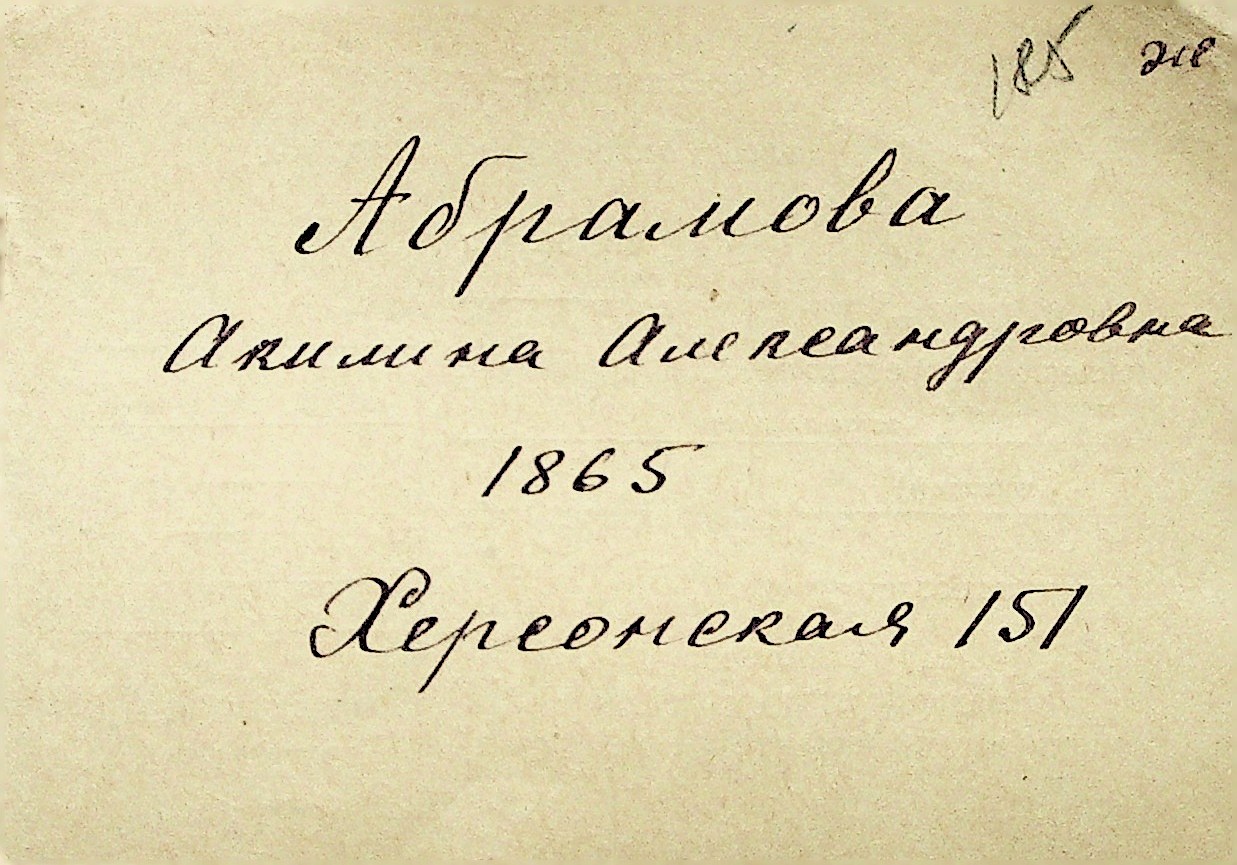 185 же
Абрамова
Акилина Александровна
1865
Херсонская 151